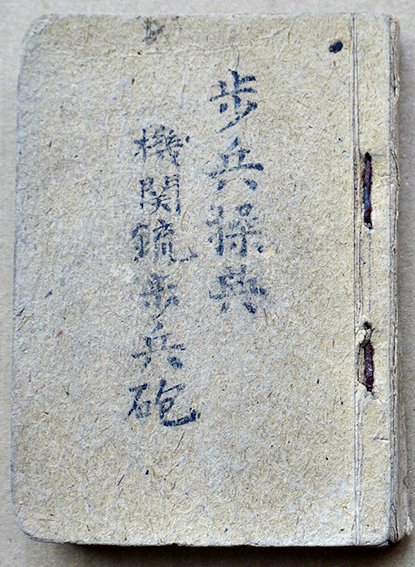 歩兵操典
機関銃歩兵砲